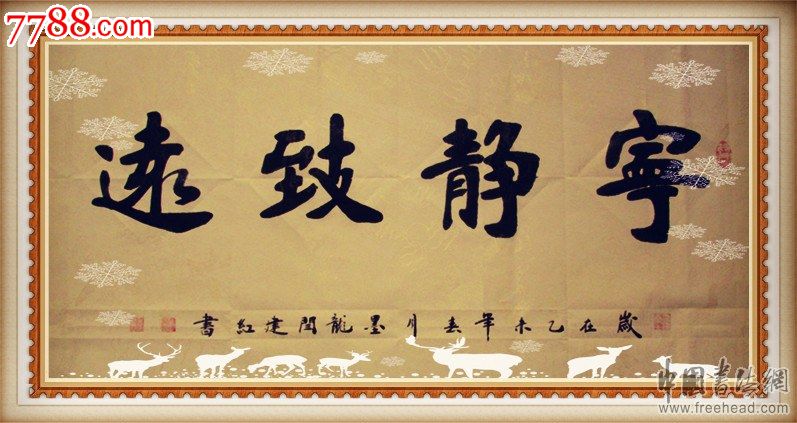 7788.com
寧静致遠
歲在乙未年春月墨龍閆建紅書
中国書法網
www.freehead.com